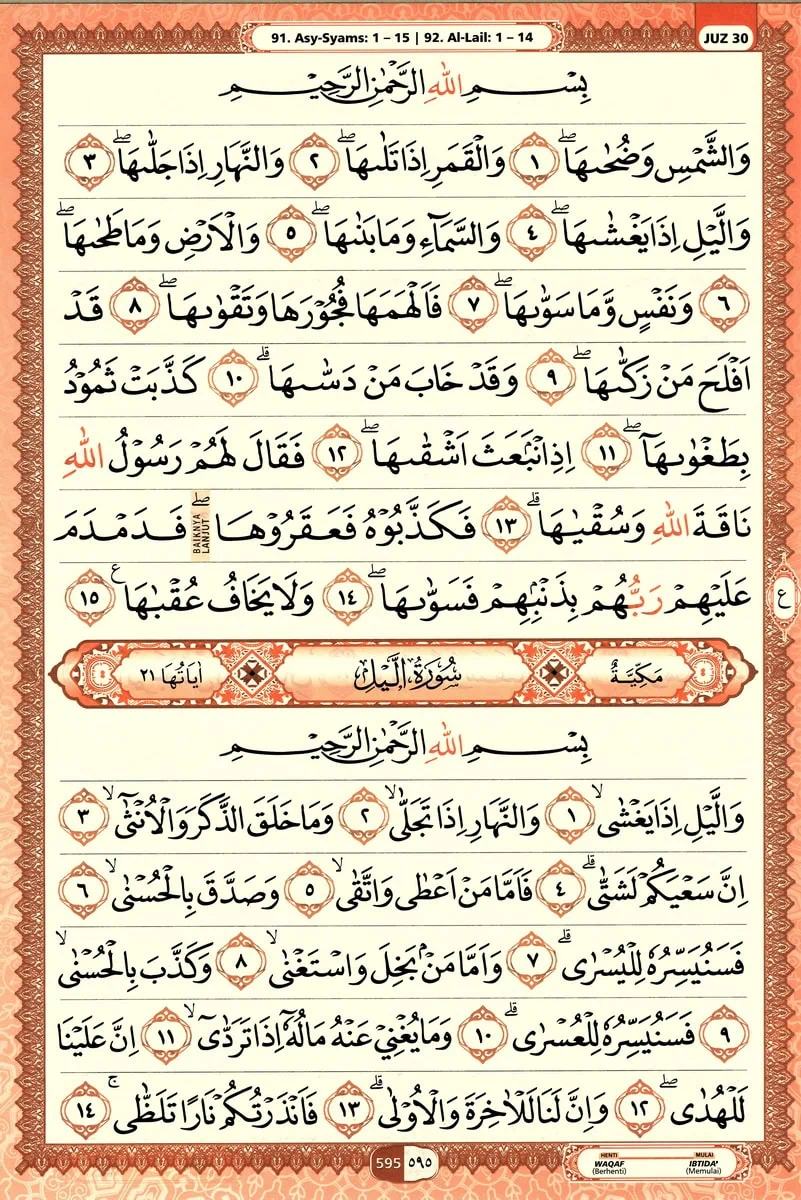 91. Asy-Syams: 1 – 15 | 92. Al-Lail: 1 – 14
JUZ 30
بِسْمِ اللّٰهِ الرَّحْمٰنِ الرَّحِيْمِ
وَالشَّمْسِ وَضُحٰىهَاۖ ١ وَالْقَمَرِ اِذَا تَلٰىهَاۖ ٢ وَالنَّهَارِ اِذَا جَلّٰىهَاۖ ٣
وَالَّيْلِ اِذَا يَغْشٰىهَاۖ ٤ وَالسَّمَاۤءِ وَمَا بَنٰىهَاۖ ٥ وَالْاَرْضِ وَمَا طَحٰىهَاۖ
٦ وَنَفْسٍ وَّمَا سَوّٰىهَاۖ ٧ فَاَلْهَمَهَا فُجُوْرَهَا وَتَقْوٰىهَاۖ ٨ قَدْ
اَفْلَحَ مَنْ زَكّٰىهَاۖ ٩ وَقَدْ خَابَ مَنْ دَسّٰىهَاۗ ١٠ كَذَّبَتْ ثَمُوْدُ
بِطَغْوٰىهَآۖ ١١ اِذِ انْۢبَعَثَ اَشْقٰىهَاۖ ١٢ فَقَالَ لَهُمْ رَسُوْلُ اللّٰهِ
نَاقَةَ اللّٰهِ وَسُقْيٰهَاۗ ١٣ فَكَذَّبُوْهُ فَعَقَرُوْهَاۖ BAIKNYA LANJUT فَدَمْدَمَ
عَلَيْهِمْ رَبُّهُمْ بِذَنْۢبِهِمْ فَسَوّٰىهَاۖ ١٤ وَلَا يَخَافُ عُقْبٰهَا ࣖ ١٥
ع
مَكِّيَّةٌ سُوْرَةُ الَّيْلِ اٰيَاتُهَا ٢١
بِسْمِ اللّٰهِ الرَّحْمٰنِ الرَّحِيْمِ
وَالَّيْلِ اِذَا يَغْشٰىۙ ١ وَالنَّهَارِ اِذَا تَجَلّٰىۙ ٢ وَمَا خَلَقَ الذَّكَرَ وَالْاُنْثٰىۙ ٣
اِنَّ سَعْيَكُمْ لَشَتّٰىۗ ٤ فَاَمَّا مَنْ اَعْطٰى وَاتَّقٰىۙ ٥ وَصَدَّقَ بِالْحُسْنٰىۙ ٦
فَسَنُيَسِّرُهٗ لِلْيُسْرٰىۗ ٧ وَاَمَّا مَنْۢ بَخِلَ وَاسْتَغْنٰىۙ ٨ وَكَذَّبَ بِالْحُسْنٰىۙ
٩ فَسَنُيَسِّرُهٗ لِلْعُسْرٰىۗ ١٠ وَمَا يُغْنِيْ عَنْهُ مَالُهٗٓ اِذَا تَرَدّٰىٓۙ ١١ اِنَّ عَلَيْنَا
لَلْهُدٰىۖ ١٢ وَاِنَّ لَنَا لَلْاٰخِرَةَ وَالْاُوْلٰىۗ ١٣ فَاَنْذَرْتُكُمْ نَارًا تَلَظّٰىۚ ١٤
595 ٥٩٥
HENTI WAQAF (Berhenti) MULAI IBTIDA' (Memulai)